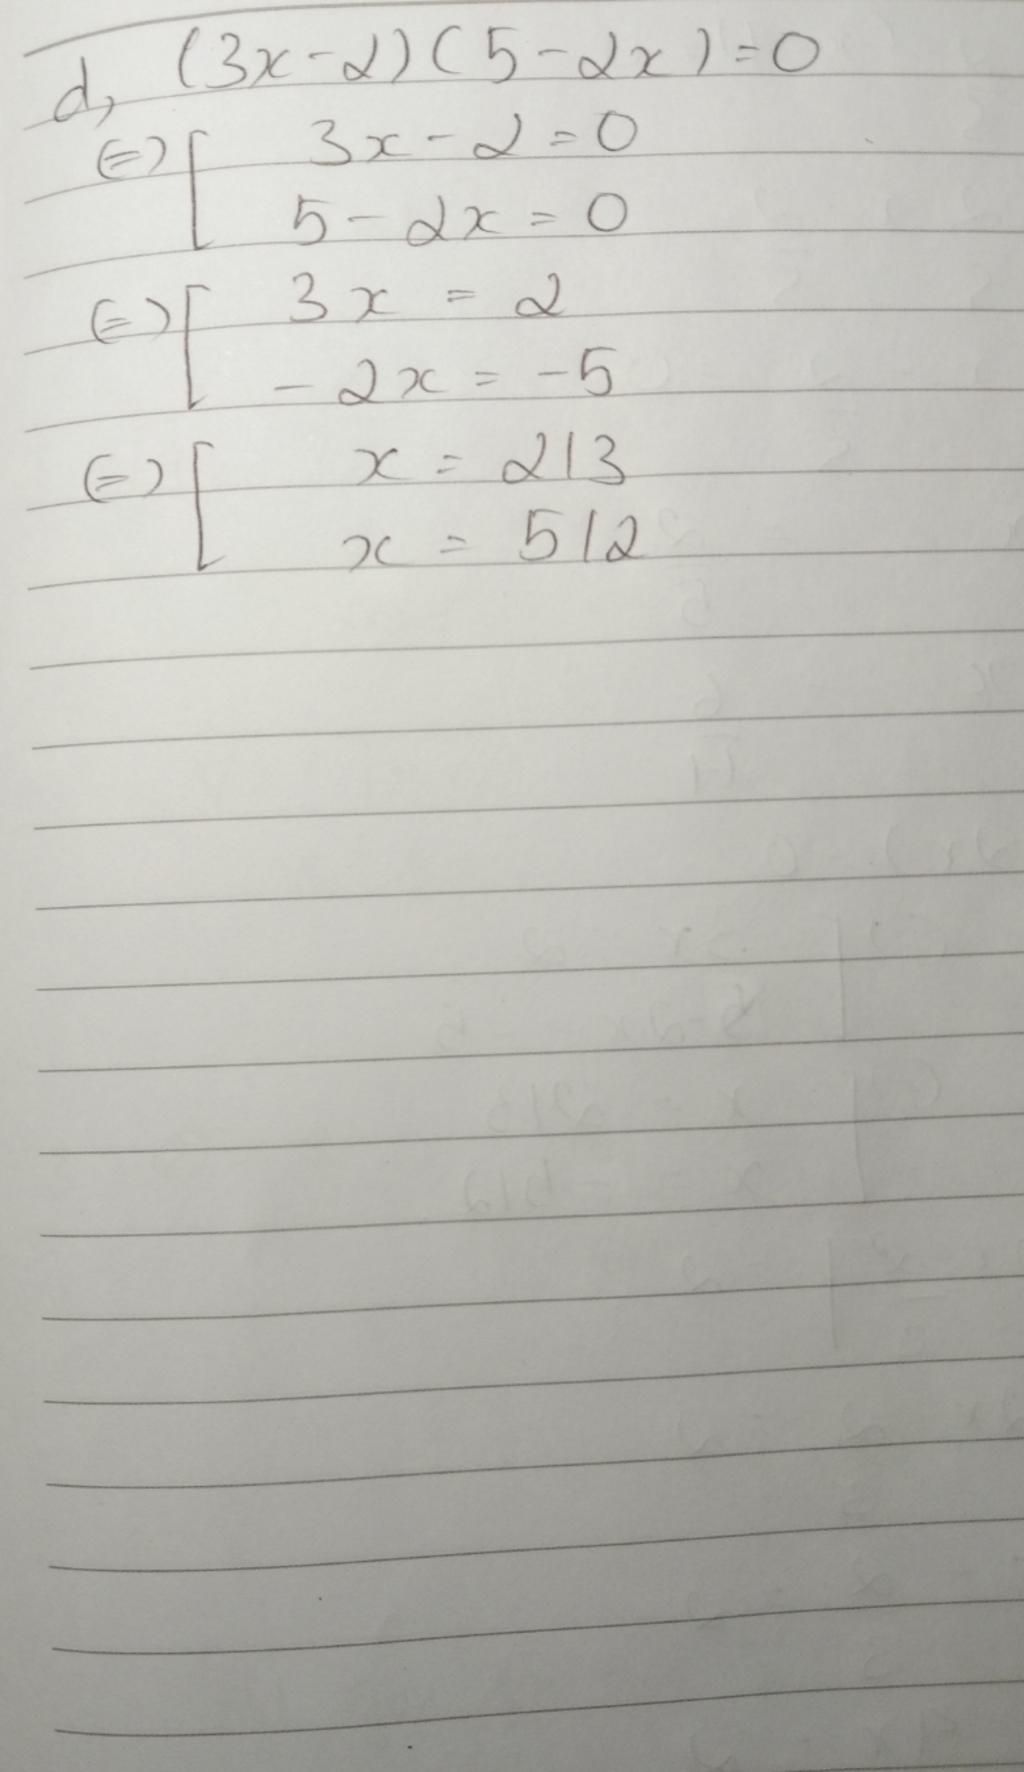 d, (3x-2)(5-2x)=0
<=> [ 3x-2=0
5-2x=0
<=> [ 3x = 2
-2x = -5
<=> [ x = 2/3
x = 5/2